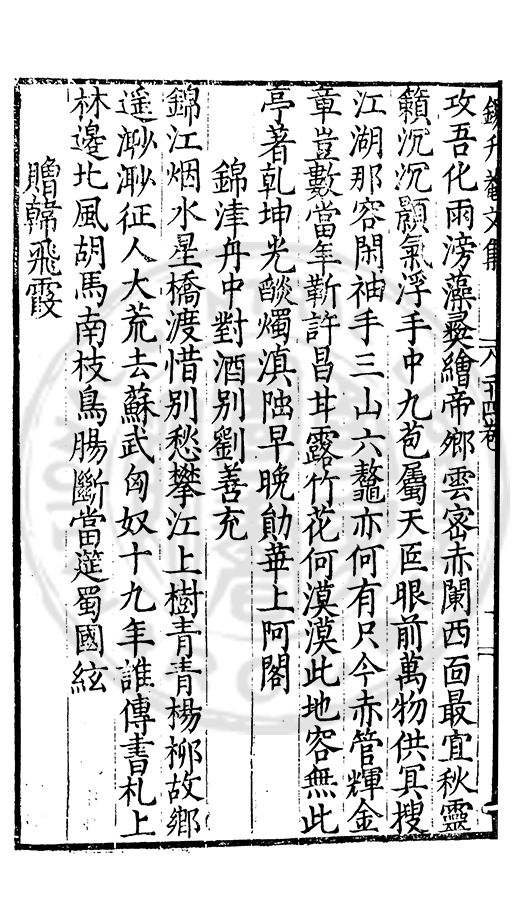 錦升菴文集 二十四卷
攻吾化雨滂藻羙繪帝鄉雲密赤闌西面最宜秋靈
籟沉沉顥氣浮手中九苞屬天匠眼前萬物供冥搜
江湖那容閑袖手三山六鼇亦何有只今赤管輝金
章豈數當年靳許昌甘露竹花何漠漠此地容無此
亭著乾坤光燄燭滇陲早晚勛華上阿閣
錦津舟中對酒别劉善充
錦江烟水星橋渡惜别愁攀江上樹青青楊柳故鄉
遥渺渺征人大荒去蘇武匈奴十九年誰傳書札上
林邊北風胡馬南枝鳥腸斷當筵蜀國絃
贈韓飛霞